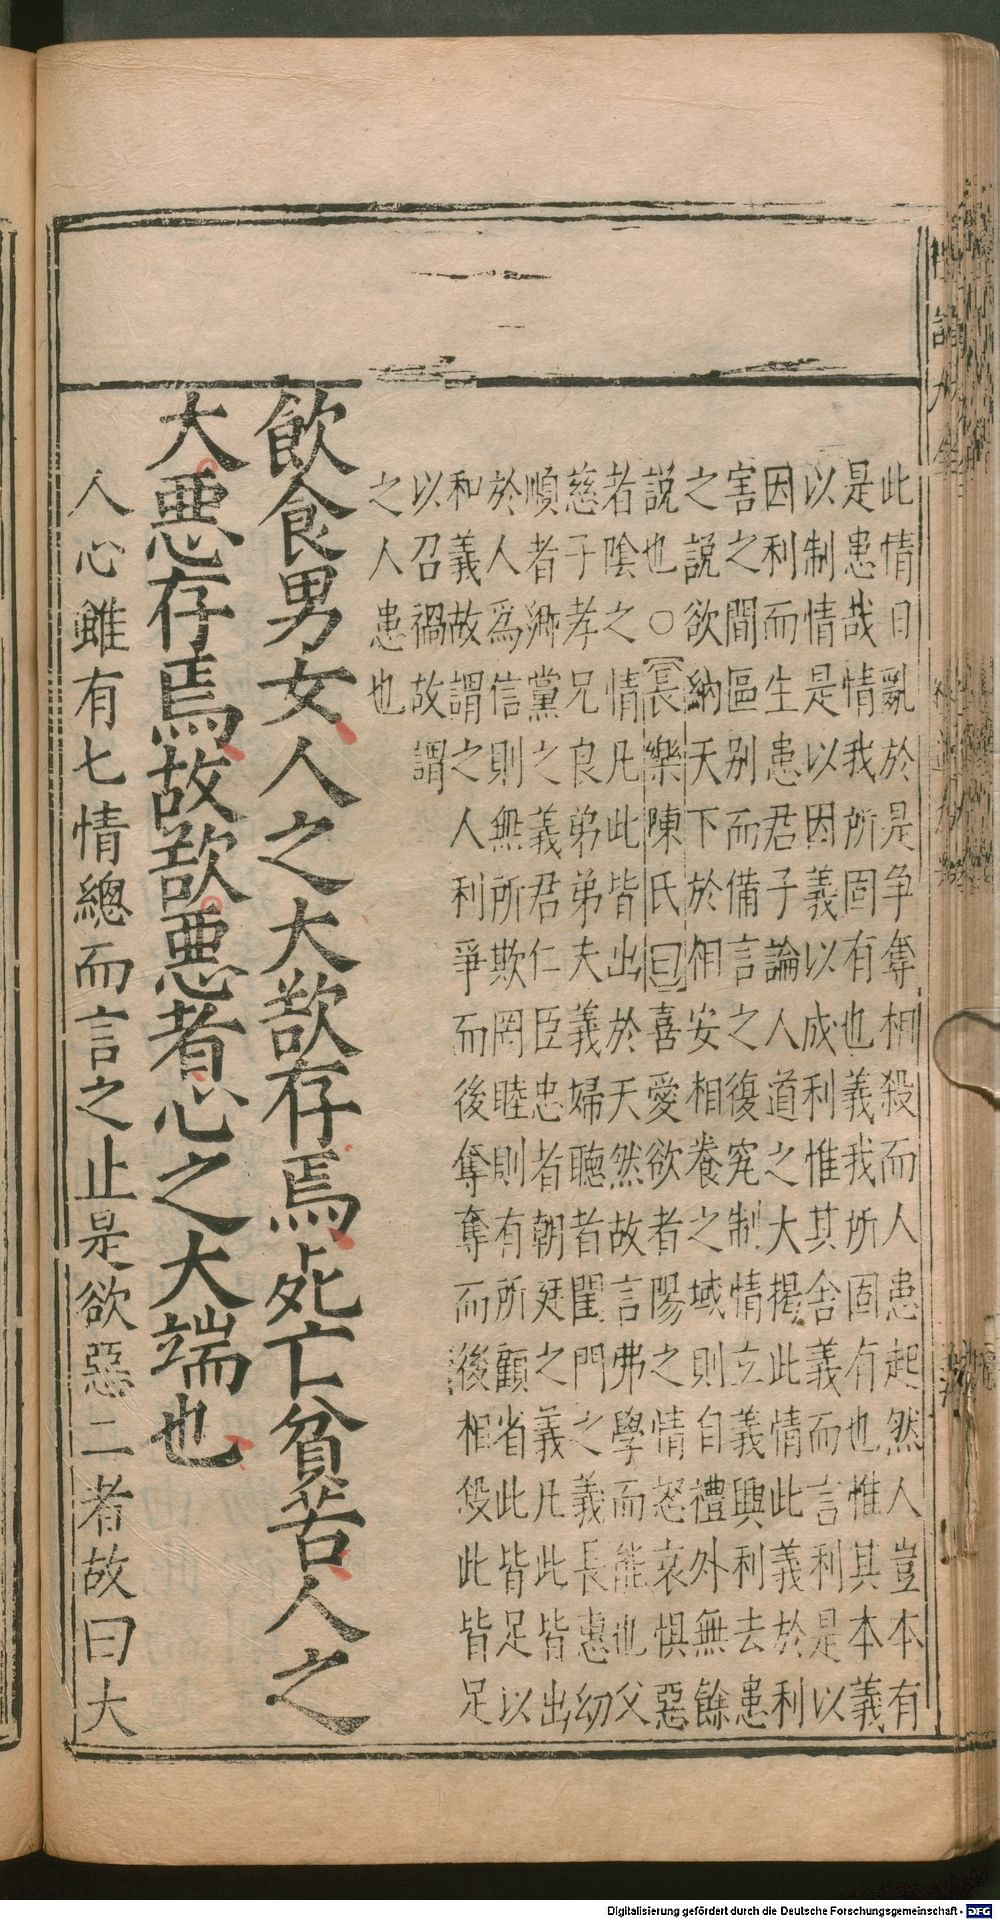 此情日亂於是爭奪相殺而人患起然人豈本有
是患哉情我所固有也義我所固有也惟其本義
以制情是以因義以成利惟其舍義而言利是以
因利而生患君子論人道之大揭此情此義於利
害之間區别而備言之復究制情立義興利去患
之說欲納天下於相安相養之域則自禮外無餘
說也○長樂陳氏曰喜愛欲者陽之情怒哀懼惡
者陰之情凡此皆出於天然故言弗學而能也父
慈子孝兄良弟弟夫義婦聽者閨門之義長惠幼
順者鄉黨之義君仁臣忠者朝廷之義凡此皆出
於人爲信則無所欺罔睦則有所顧省此皆足以
和義故謂之人利爭而後奪奪而後相殺此皆足
以召禍故謂
之人患也
飲食男女人之大欲存焉死亡貧苦人之
大惡存焉故欲惡者心之大端也
人心雖有七情總而言之止是欲惡二者故曰大
Digitalisierung gefördert durch die Deutsche Forschungsgemeinschaft - DFG